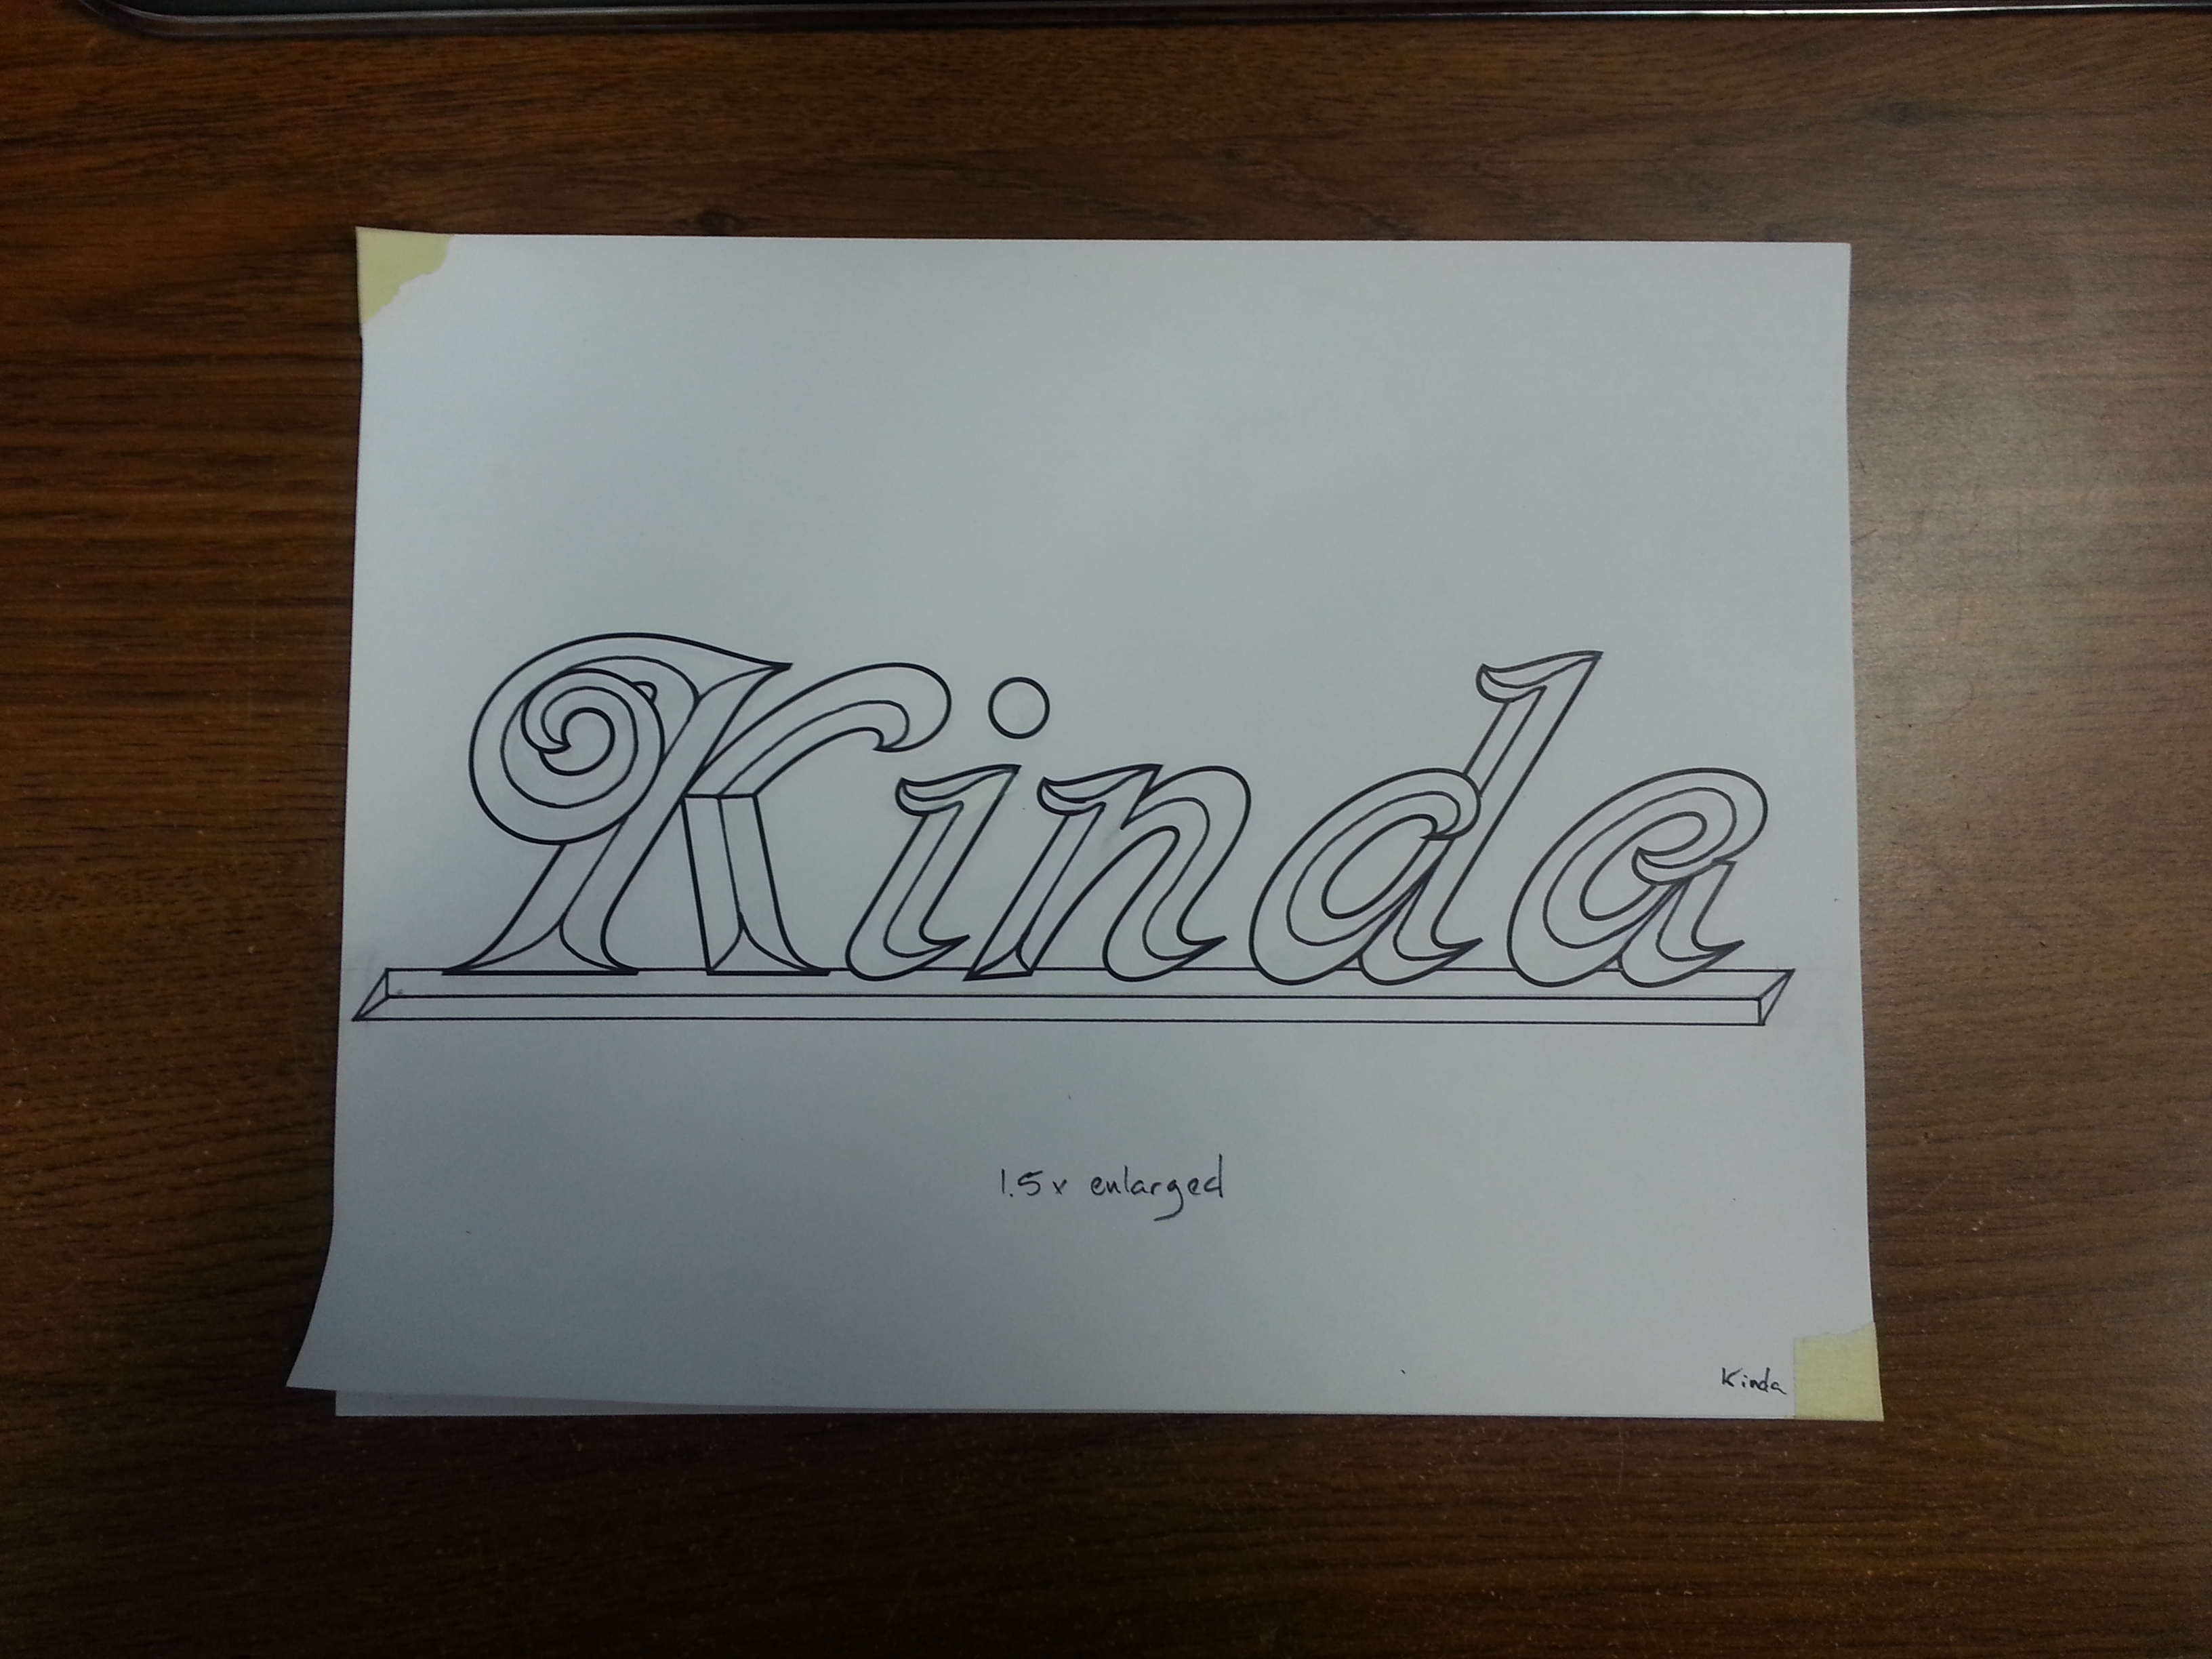 Kinda
1.5x enlarged
Kinda